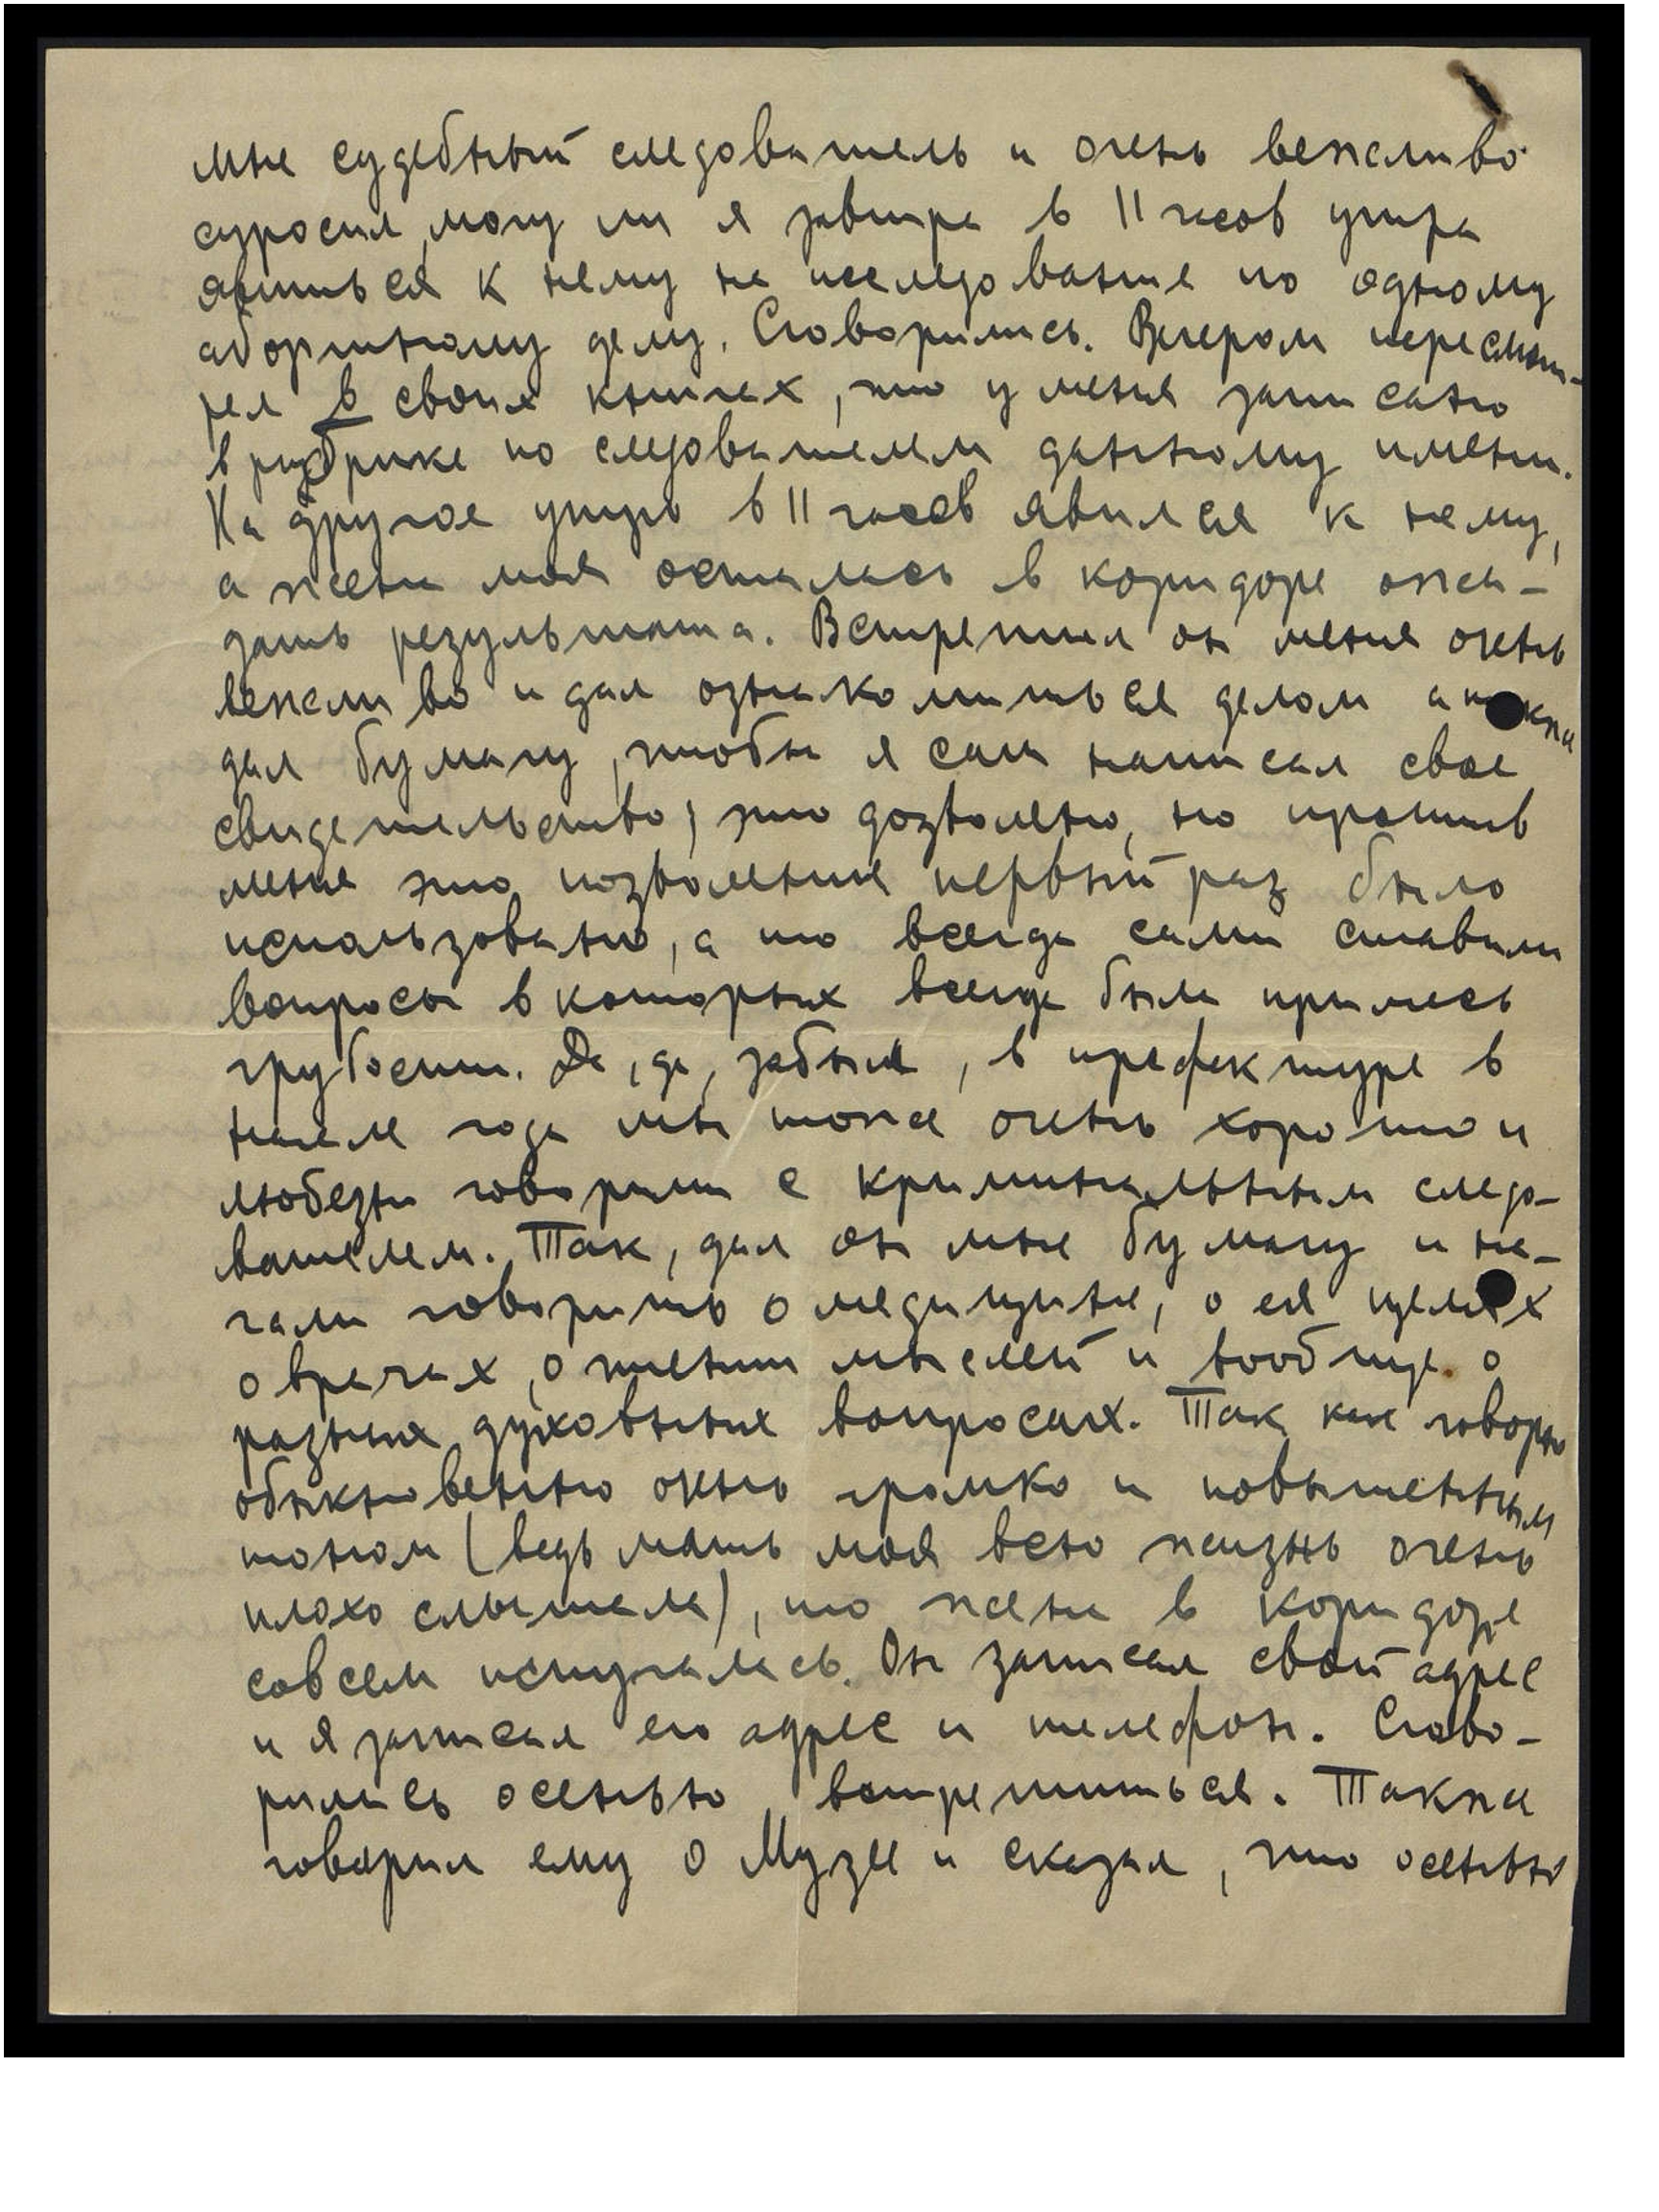 мне судебный следователь и очень вежливо
спросил, могу ли я завтра в 11 часов утра
явиться к нему на исследование по одному
абортному делу. Сговорились. Вечером пересмот-
рел в своих книгах, что у меня записано
в рубрике по следователем данному имени.
На другое утро в 11 часов явился к нему,
а жена моя осталась в коридоре ожи-
дать результата. Встретил он меня очень
вежливо и дал ознакомиться делом а
дал бумагу, чтобы я сам написал свое
свидетельство; это дозволено, но против
меня это позволение первый раз было
использовано, а то всегда сами ставили
вопросы в которых всегда была примесь
грубости. Да, да, забыл, в префектуре в
начале года мы тоже очень хорошо и
любезно говорили с криминальным следо-
вателем. Так, дал он мне бумагу и на-
чали говорить о медицине, о ея целях
о врачах, о чтении мыслей и вообще о
разных духовных вопросах. Так как говорю
обыкновенно очень громко и повышенным
тоном (ведь мать моя всю жизнь очень
плохо слышала), то жена в коридоре
совсем испугалась. Он записал свой адрес
и я записал его адрес и телефон. Сгово-
рились осенью встретиться. Также
говорил ему о Музее и сказал, что осенью